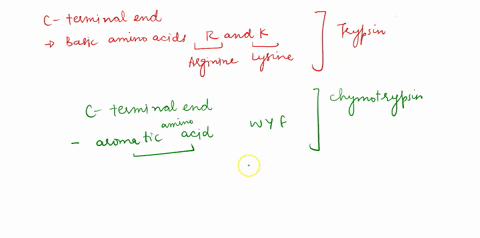 C- terminal end
→ Basic amino acids R and K ] Trypsin
Arginine Lysine
C- terminal end ] Chymotrypsin
- aromatic amino acid W Y F